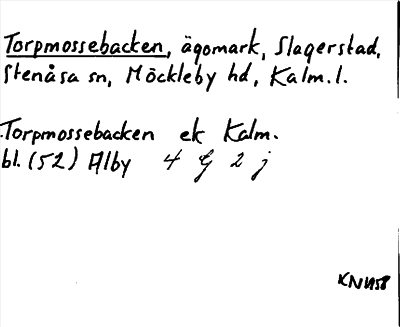 Torpmossebacken, ägomark, Slagerstad,
Stenåsa sn, Möckleby hd, Kalm. l.
Torpmossebacken ek Kalm.
bl. (52) Alby 4 G 2 j